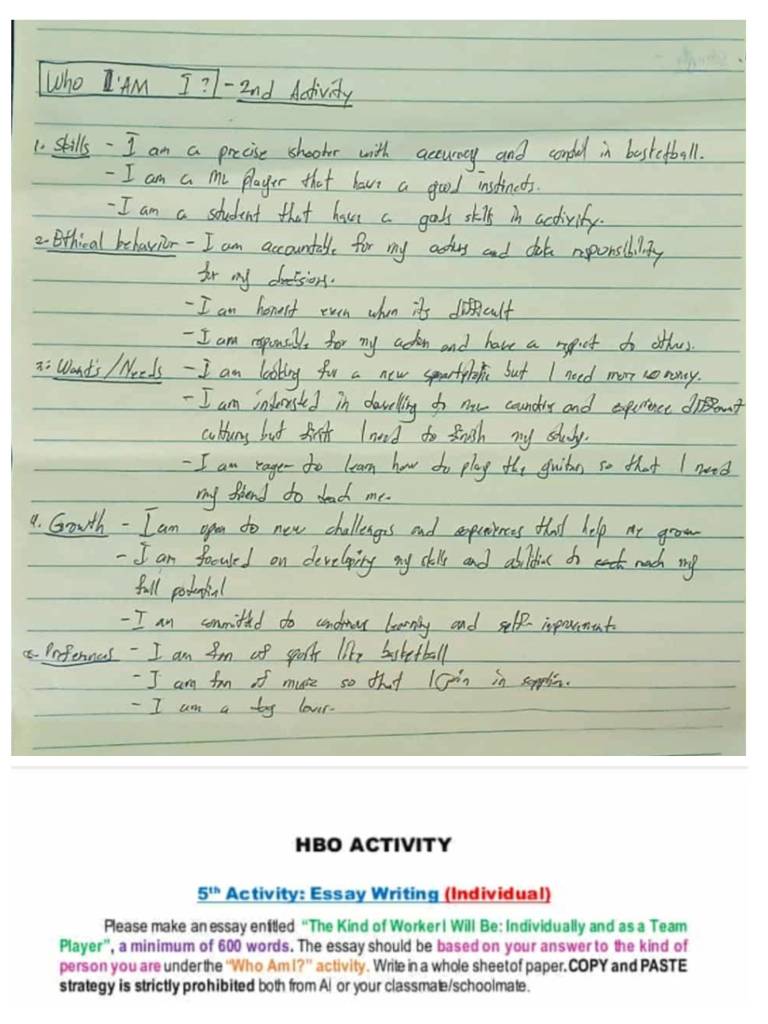 Who I'AM I? - 2nd Activity
1. Skills - I am a precise shooter with accuracy and control in basketball.
- I am a ML player that have a good instincts.
- I am a student that have a goods skills in activity.
2. Ethical behavior - I am accountable for my actions and take responsibility
for my decisions.
- I am honest even when its difficult
- I am responsible for my action and have a respect to others.
3. Wants/Needs - I am looking for a new smartphone but I need more money.
- I am interested in travelling to new countries and experience different
cultures but first I need to finish my study.
- I am eager to learn how to play the guitar so that I need
my friend to teach me.
4. Growth - I am open to new challenges and experiences that help me grow
- I am focused on developing my skills and abilities to reach my
full potential
- I am committed to continous learning and self-improvement
5. Prefernces - I am fan of sports like basketball
- I am fan of music so that I join in
- I am a dog lover.
HBO ACTIVITY
5th Activity: Essay Writing (Individual)
Please make an essay entitled "The Kind of Worker I Will Be: Individually and as a Team
Player", a minimum of 600 words. The essay should be based on your answer to the kind of
person you are under the "Who Am I?" activity. Write in a whole sheet of paper. COPY and PASTE
strategy is strictly prohibited both from AI or your classmate/schoolmate.